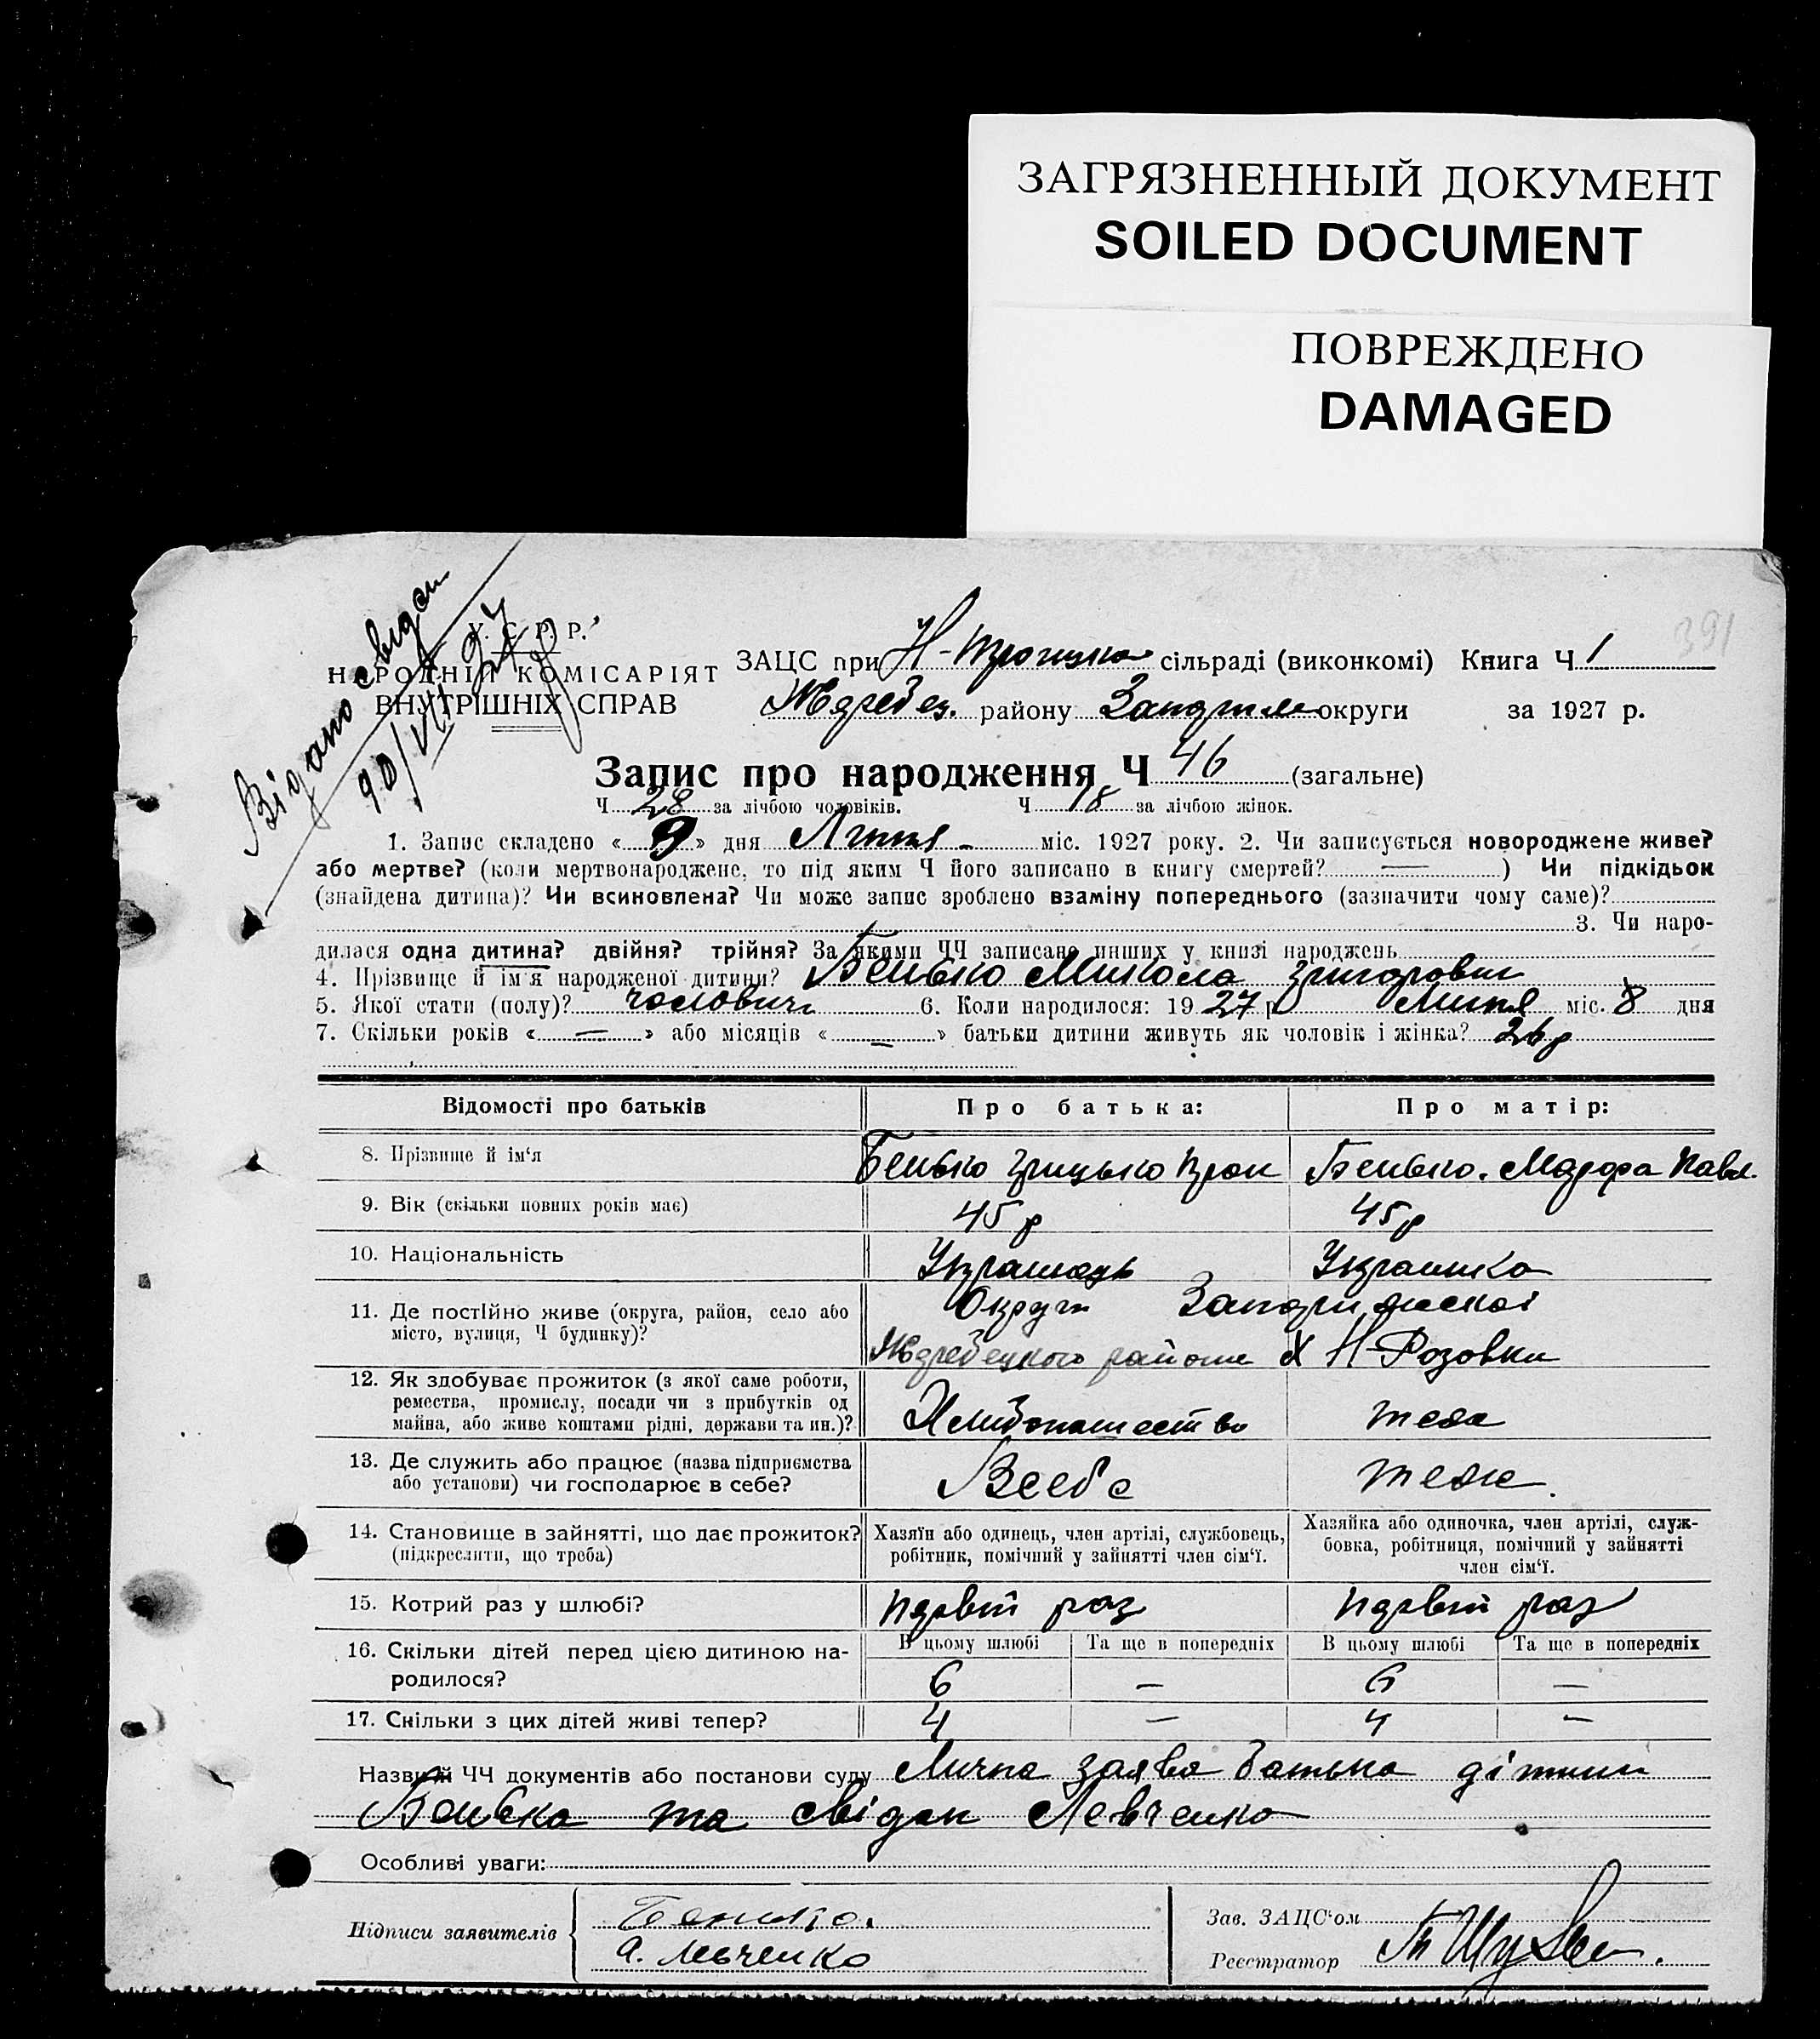 ЗАГРЯЗНЕННЫЙ ДОКУМЕНТ
SOILED DOCUMENT
ПОВРЕЖДЕНО
DAMAGED
391
Видано свідоц
У. С. Р. Р.
НАРОДНІЙ КОМІСАРІЯТ
ВНУТРІШНІХ СПРАВ
ЗАЦС при Н-Троицко сільраді (виконкомі) Книга Ч 1
Жеребец. району Запорож округи за 1927 р.
Запис про народження Ч 46 (загальне)
Ч 28 за лічбою чоловіків. Ч 18 за лічбою жінок.
1. Запис складено « 9 » дня Липня міс. 1927 року. 2. Чи записується новороджене живе?
або мертве? (коли мертвонароджене, то під яким Ч його записано в книгу смертей? — ) Чи підкідьок
(знайдена дитина)? Чи всиновлена? Чи може запис зроблено взаміну попереднього (зазначити чому саме)?
3. Чи наро-
дилася одна дитина? двійня? трійня? За якими ЧЧ записано инших у книзі народжень
4. Прізвище й ім'я народженої дитини? Бенько Микола Григорович
5. Якої стати (полу)? чоловичи 6. Коли народилося: 19 27 р Липня міс. 8 дня
7. Скільки років « — » або місяців « — » батьки дитини живуть як чоловік і жінка? 26 р
Відомості про батьків Про батька: Про матір:
8. Прізвище й ім'я Бенько Грицько Бенько. Павл.
9. Вік (скільки повних років має) 45 р 45 р
10. Національність Українець Украинка
11. Де постійно живе (округа, район, село або
місто, вулиця, Ч будинку)?
Округи Запорижской
Жеребецкого района х Н-Розовки
12. Як здобуває прожиток (з якої саме роботи,
ремества, промислу, посади чи з прибутків од
майна, або живе коштами рідні, держави та ин.)?
Хлибопашество теж
13. Де служить або працює (назва підприємства
або установи) чи господарює в себе?
Всебе теж.
14. Становище в зайнятті, що дає прожиток?
(підкреслити, що треба)
Хазяїн або одинець, член артілі, службовець,
робітник, помічний у зайнятті член сім'ї.
Хазяйка або одиночка, член артілі, служ-
бовка, робітниця, помічний у зайнятті
член сім'ї.
15. Котрий раз у шлюбі? первий раз первий раз
16. Скільки дітей перед цією дитиною на-
родилося?
В цьому шлюбі Та ще в попередніх В цьому шлюбі Та ще в попередніх
6 — 6 —
17. Скільки з цих дітей живі тепер? 4 — 4 —
Назви й ЧЧ документів або постанови суду Лична заява батька дітини
Бенька та свідок Левченко
Особливі уваги:
Підписи заявителів
Бенько.
А. Левченко
Зав. ЗАЦС'ом
Реєстратор